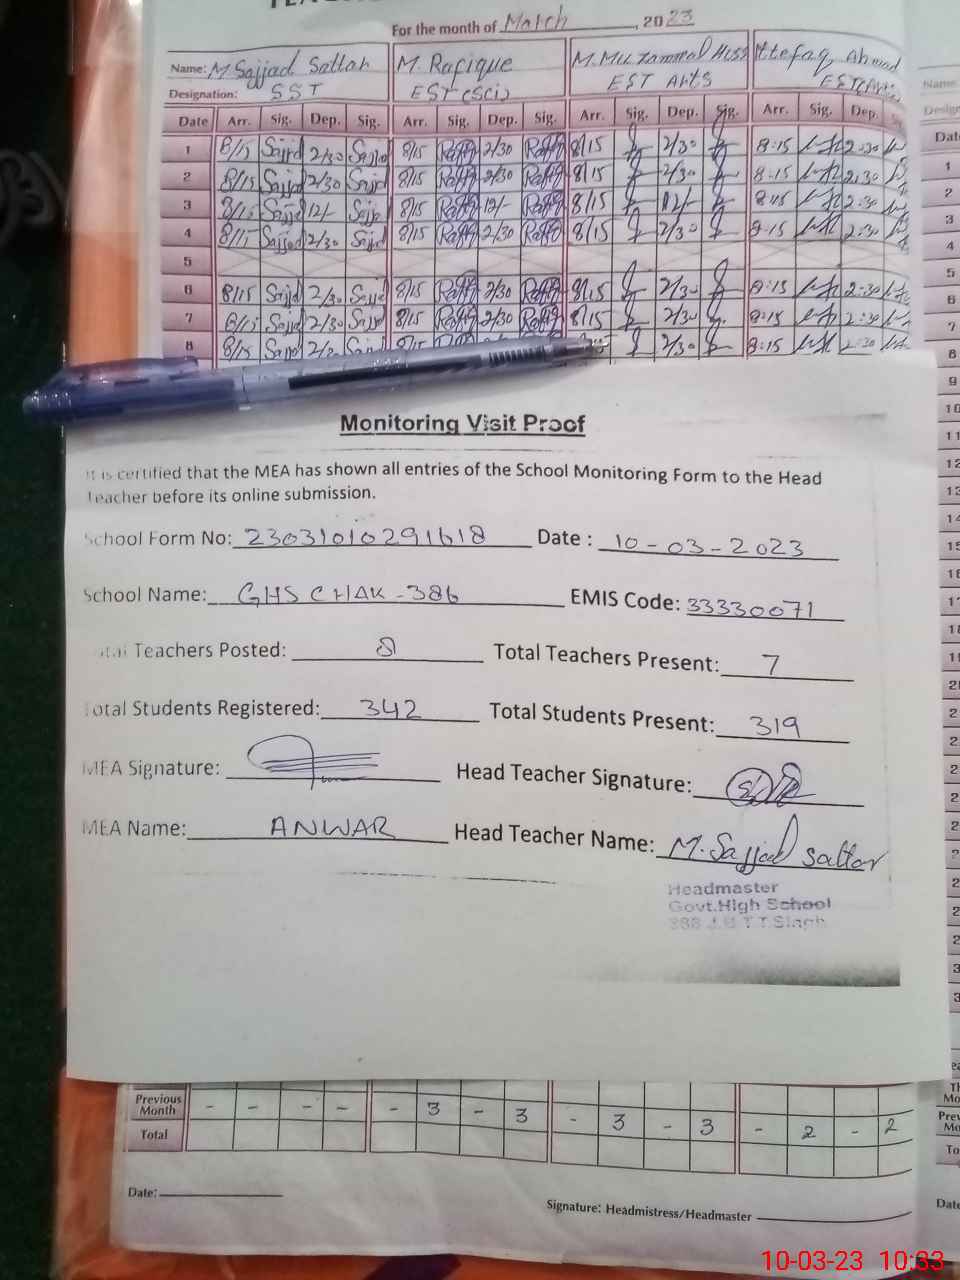 For the month of March, 2023
Name: M Sajjad Sattar M. Rafique M. Muzammal Ittefaq Ahmad
Designation: SST EST (Sci) EST Arts EST(Arts)
Date Arr. Sig. Dep. Sig. Arr. Sig. Dep. Sig. Arr. Sig. Dep. Sig. Arr. Sig. Dep.
1 8/15 Sajjd 2/30 Sajjd 8/15 Raffq 2/30 Raffq 8/15 2/30 8:15 2:30
2 8/15 Sajjd 2/30 Sajjd 8/15 Raffq 2/30 Raffq 8/15 2/30 8:15 2:30
3 8/15 Sajjd 12/- Sajjd 8/15 Raffq 12/- Raffq 8/15 12/- 8:15
4 8/15 Sajjd 2/30 Sajjd 8/15 Raffq 2/30 Raffq 8/15 2/30 8:15 2:30
5
6 8/15 Sajjd 2/30 Sajjd 8/15 Raffq 2/30 Raffq 8/15 2/30 8:15 2:30
7 8/15 Sajjd 2/30 Sajjd 8/15 Raffq 2/30 Raffq 8/15 2/30 8:15 2:30
8 8/15 Sajjd 8/15 2/30 8:15 2:30
Monitoring Visit Proof
It is certified that the MEA has shown all entries of the School Monitoring Form to the Head
Teacher before its online submission.
School Form No: 23031010291618 Date : 10-03-2023
School Name: GHS CHAK-386 EMIS Code: 33330071
Total Teachers Posted: 8 Total Teachers Present: 7
Total Students Registered: 342 Total Students Present: 319
MEA Signature: Head Teacher Signature:
MEA Name: ANWAR Head Teacher Name: M. Sajjad Sattar
Headmaster
Govt.High School
J.B T.T.Singh
Previous Month - - - - - 3 - 3 - 3 - 3 - 2 - 2
Total
Date:
Signature: Headmistress/Headmaster
10-03-23 10:33